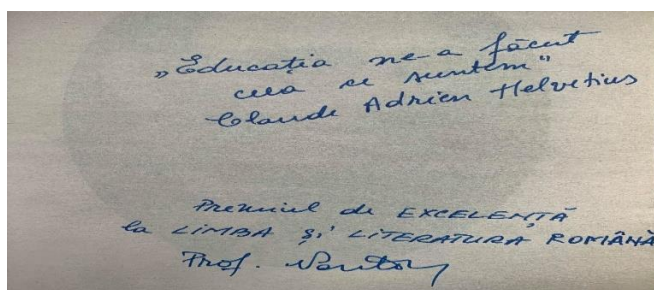 „Educația ne-a făcut
ceea ce suntem"
Claude Adrien Helvetius
Premiul de EXCELENȚĂ
la LIMBA ȘI LITERATURA ROMÂNĂ
Prof.